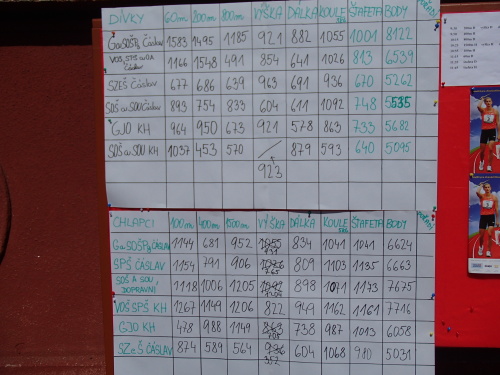 DÍVKY 60m 200m 800m VÝŠKA DÁLKA KOULE 3KG ŠTAFETA BODY POŘADÍ
G a SOŠPg Čáslav 1583 1495 1185 921 882 1055 1001 8122
VOŠ, SPŠ a OA Čáslav 1166 1548 491 854 641 1026 813 6539
SZEŠ Čáslav 677 686 639 963 691 936 670 5262
SOŠ a SOU Čáslav 893 754 833 604 611 1092 748 5535
GJO KH 964 950 673 921 578 863 733 5682
SOŠ a SOU KH 1037 453 570 879 593 640 5095
923
CHLAPCI 100m 400m 1500m VÝŠKA DÁLKA KOULE 5KG ŠTAFETA BODY POŘADÍ
G a SOŠPg ČÁSLAV 1144 681 952 834 1041 1041 6624
SPŠ ČÁSLAV 1154 791 906 809 1103 1135 6663
SOŠ A SOU DOPRAVNÍ 1118 1006 1205 898 1071 1173 7675
VOŠ SPŠ KH 1267 1149 1206 822 949 1162 1161 7716
GJO KH 478 988 1149 738 987 1013 6058
SZeŠ ČÁSLAV 874 589 564 352 604 1068 980 5031